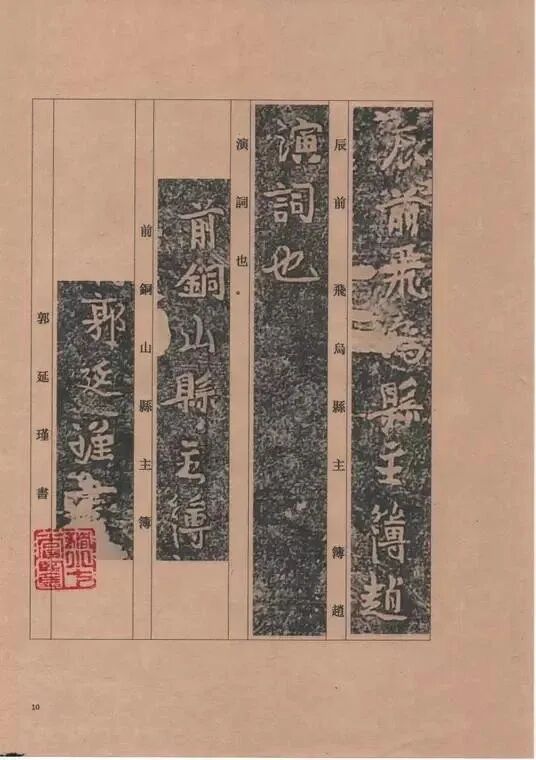 辰前飛烏縣主簿趙
辰前飛烏縣主簿趙
演詞也
演詞也。
前銅山縣主簿
前銅山縣主簿
郭延瑾書
郭延瑾書
10